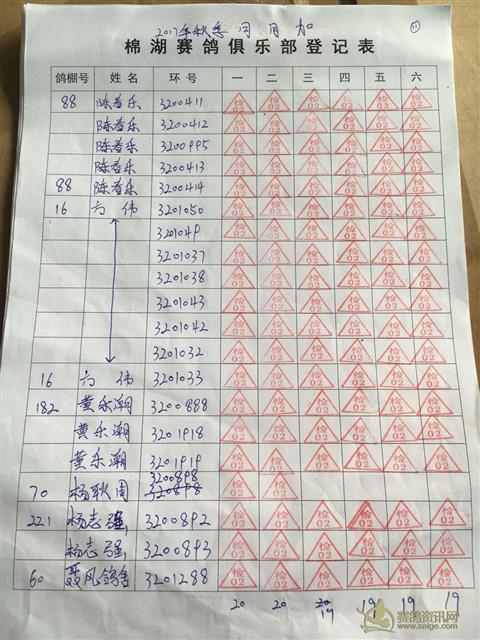 2017年秋季 月 加 (11)
棉湖赛鸽俱乐部登记表
鸽棚号 姓名 环号 一 二 三 四 五 六
88 陈若乐 3200411 检02 检02 检02 检02 检02 检02
陈若乐 3200412 检02 检02 检02 检02 检02 检02
陈若乐 3200995 检02 检02 检02 检02 检02 检02
陈若乐 3200413 检02 检02 检02 检02 检02 检02
88 陈若乐 3200414 检02 检02 检02 检02 检02 检02
16 方伟 3201050 检02 检02 检02 检02 检02 检02
3201049 检02 检02 检02 检02 检02 检02
3201037 检02 检02 检02 检02 检02 检02
3201038 检02 检02 检02 检02 检02 检02
3201043 检02 检02 检02 检02 检02 检02
3201042 检02 检02 检02 检02 检02 检02
3201032 检02 检02 检02 检02 检02 检02
16 方伟 3201033 检02 检02 检02 检02 检02 检02
182 黄乐潮 3200888 检02 检02 检02 检02 检02 检02
黄乐潮 3201918 检02 检02 检02 检02 检02 检02
黄乐潮 3201919 检02 检02 检02 检02 检02 检02
3200898
70 杨耿周 3200898 检02 检02
221 杨志强 3200892 检02 检02 检02 检02 检02 检02
杨志强 3200893 检02 检02 检02 检02 检02 检02
60 聂风鸽舍 3201288 检02 检02 检02 检02 检02 检02
20 20 20 19 19 19 19
19
赛鸽资讯网
www.saige.com